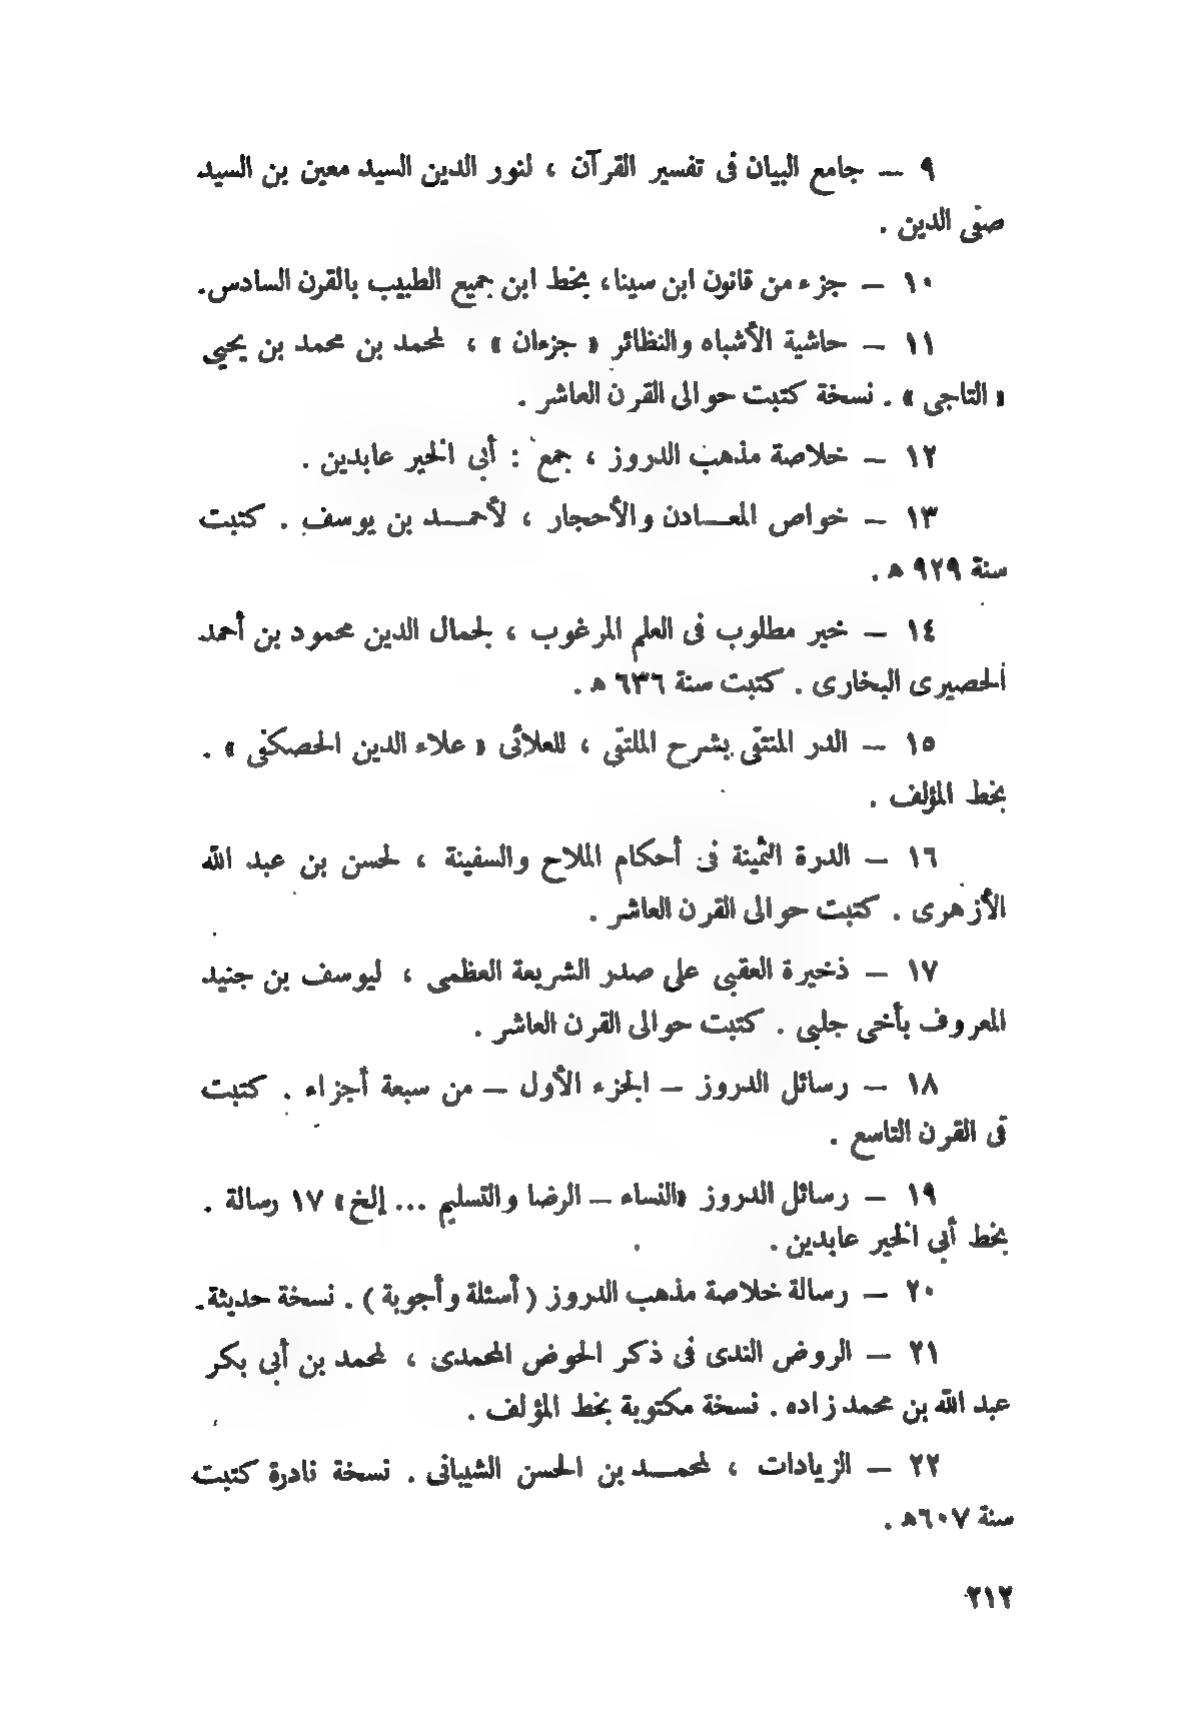 ٩ — جامع البيان فى تفسير القرآن ، لنور الدين السيد معين بن السيد
صفى الدين .
١٠ — جزء من قانون ابن سينا، بخط ابن جميع الطبيب بالقرن السادس.
١١ — حاشية الأشباه والنظائر « جزءان » ، لمحمد بن محمد بن يحيى
« التاجى » . نسخة كتبت حوالى القرن العاشر .
١٢ — خلاصة مذهب الدروز ، جمع : أبى الخير عابدين .
١٣ — خواص المعـادن والأحجار ، لأحمـد بن يوسف . كتبت
سنة ٩٢٩ ه .
١٤ — خير مطلوب فى العلم المرغوب ، لجمال الدين محمود بن أحمد
الحصيرى البخارى . كتبت سنة ٦٣٦ ه .
١٥ — الدر المنتقى بشرح الملتقى ، للعلائى « علاء الدين الحصكفى » .
بخط المؤلف .
١٦ — الدرة الثمينة فى أحكام الملاح والسفينة ، لحسن بن عبد الله
الأزهرى . كتبت حوالى القرن العاشر .
١٧ — ذخيرة العقبى على صدر الشريعة العظمى ، ليوسف بن جنيد
المعروف بأخى جلبى . كتبت حوالى القرن العاشر .
١٨ — رسائل الدروز — الجزء الأول — من سبعة أجزاء . كتبت
فى القرن التاسع .
١٩ — رسائل الدروز «النساء — الرضا والتسليم ... إلخ» ١٧ رسالة .
بخط أبى الخير عابدين .
٢٠ — رسالة خلاصة مذهب الدروز ( أسئلة وأجوبة ) . نسخة حديثة.
٢١ — الروض الندى فى ذكر الحوض المحمدى ، لمحمد بن أبى بكر
عبد الله بن محمد زاده . نسخة مكتوبة بخط المؤلف .
٢٢ — الزيادات ، لمحمـد بن الحسن الشيبانى . نسخة نادرة كتبت
سنة ٦٠٧ه .
٢١٢